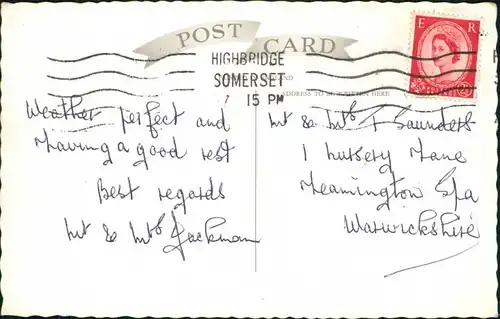 POST CARD
HIGHBRIDGE
SOMERSET
15 PM
E R
ADDRESS TO HERE
Weather perfect and
Having a good rest
Best regards
Mr & Mrs Jackman
Mr & Mrs F Saunders
1 Nursery Lane
Leamington Spa
Warwickshire